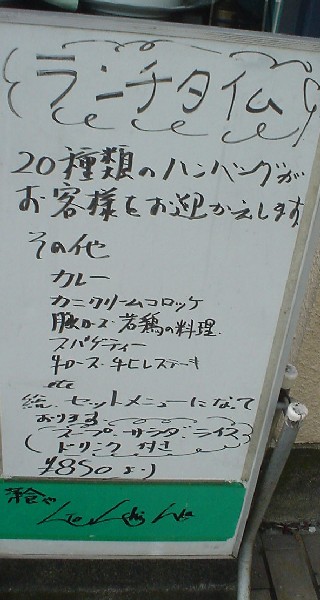 ランチタイム
20種類のハンバーグが
お客様をお迎かえします
その他
カレー
カニクリームコロッケ
豚ロース・若鶏の料理
スパゲティー
牛ロース・牛ヒレステーキ
etc
総セットメニューになって
おります
(スープ・サラダ・ライス
ドリンク 付き)
¥850より